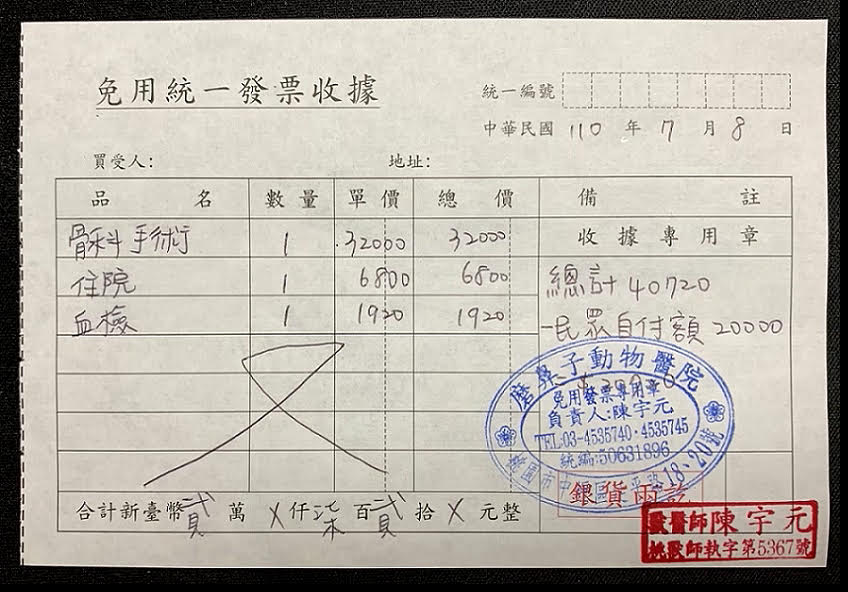 免用統一發票收據
統一編號
中華民國 110 年 7 月 8 日
買受人: 地址:
品名 數量 單價 總價 備註
收據專用章
骨科手術 1 32000 32000
住院 1 6800 6800
總計 40720
血檢 1 1920 1920
-民眾自付額 20000
磨鼻子動物醫院
免用發票專用章
負責人:陳宇元
TEL:03-4535740·4535745
統編:50631896
18·20號
銀貨兩訖
合計新臺幣 貳 萬 X 仟 柒 百 貳 拾 X 元整
獸醫師陳宇元
桃獸師執字第5367號